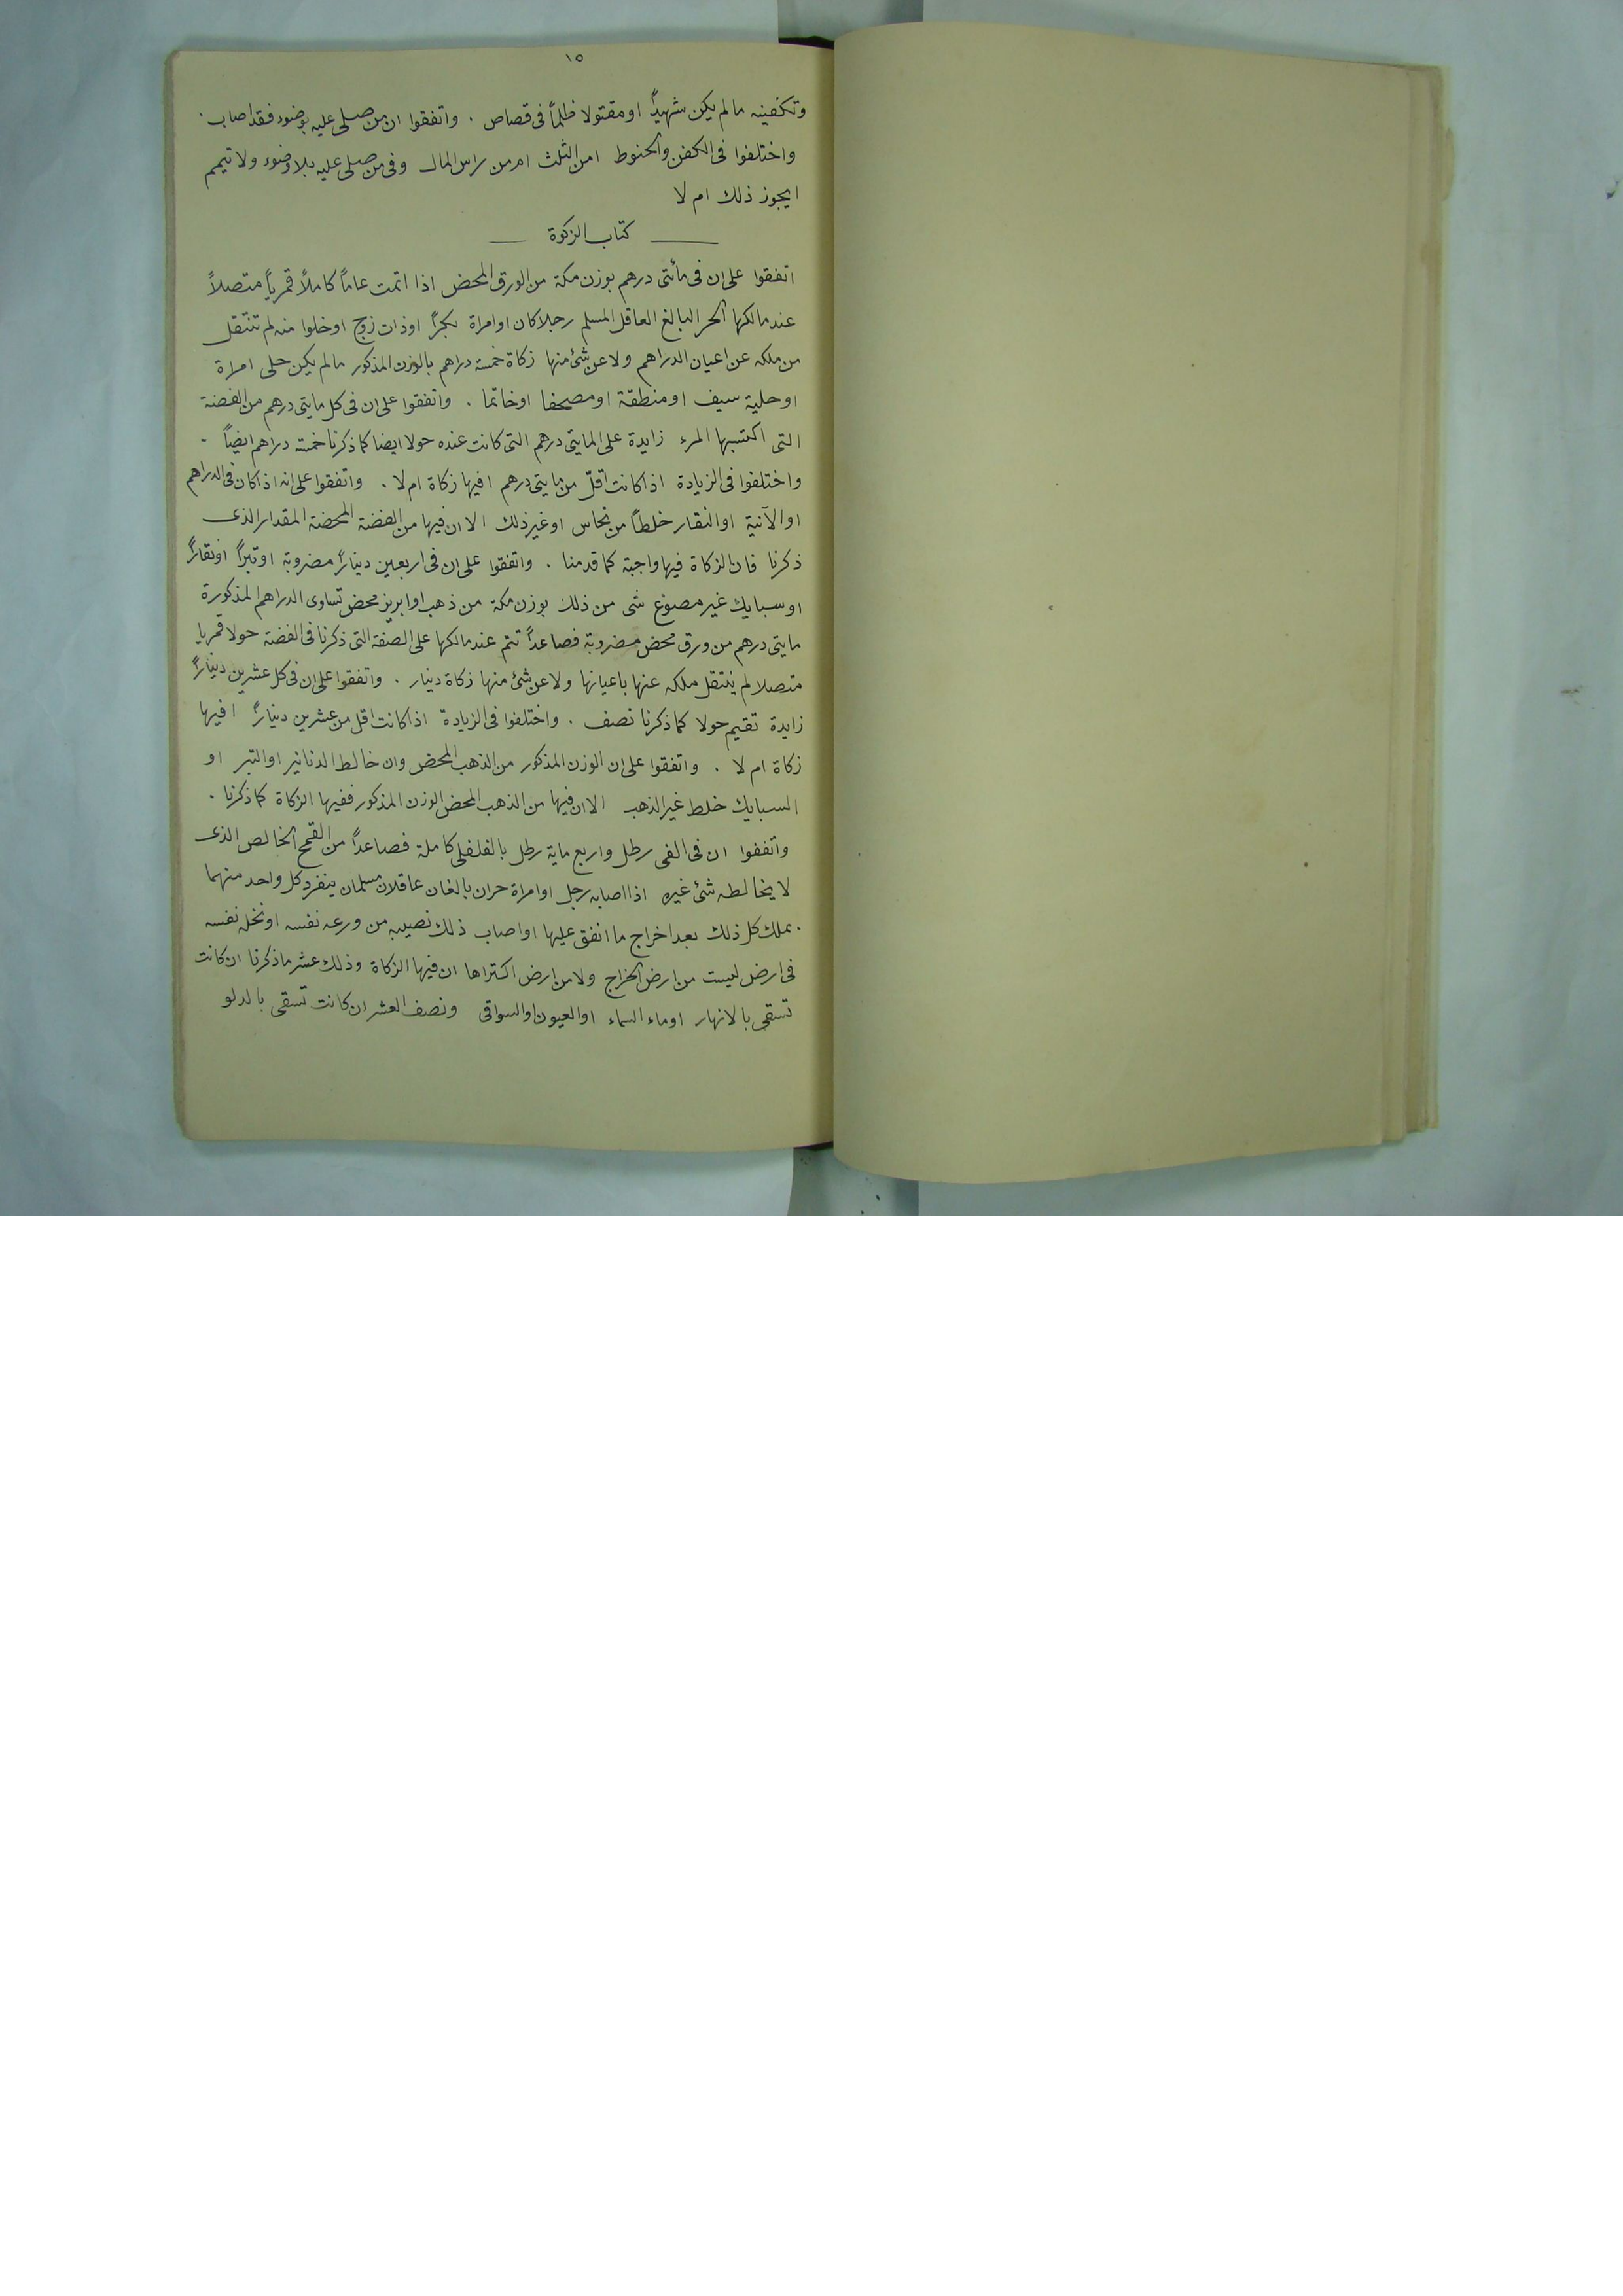 ١٥
وتكفينه مالم يكن شهيداً او مقتولا ظلماً فى قصاص . واتفقوا ان من صلى عليه بوضوء فقد اصاب .
واختلفوا فى الكفن والحنوط امن الثلث ام من راس المال وفى من صلى عليه بلا وضوء ولا تيمم
ايجوز ذلك ام لا
كتاب الزكوة
اتفقوا على ان فى مأتى درهم بوزن مكة من الورق المحض اذا اتمت عاماً كاملاً قمرياً متصلاً
عند مالكها الحر البالغ العاقل المسلم رجلا كان او امراة بكراً او ذات زوج او خلوا منه لم تنتقل
من ملكه عن اعيان الدراهم ولا عن شئ منها زكاة خمسة دراهم بالوزن المذكور مالم يكن حلى امراة
او حلية سيف او منطقة او مصحفا او خاتما . واتفقوا على ان فى كل مايتى درهم من الفضة
التى اكتسبها المرء زايدة على المايتى درهم التى كانت عنده حولا ايضا كما ذكرنا خمسة دراهم ايضاً .
واختلفوا فى الزيادة اذا كانت اقلّ من مايتى درهم افيها زكاة ام لا . واتفقوا على انه اذا كان فى الدراهم
او الآنية او النقار خلطاً من نحاس او غير ذلك الا ان فيها من الفضة المحضة المقدار الذى
ذكرنا فان الزكاة فيها واجبة كما قدمنا . واتفقوا على ان فى اربعين ديناراً مضروبة او تبراً او نقاراً
او سبايك غير مصنوغ شى من ذلك بوزن مكة من ذهب او ابريز محض تساوى الدراهم المذكورة
مايتى درهم من ورق محض مضروبة فصاعداً تتم عند مالكها على الصفة التى ذكرنا فى الفضة حولا قمريا
متصلا لم ينتقل ملكه عنها باعيانها ولا عن شئ منها زكاة دينار . واتفقوا على ان فى كل عشرين ديناراً
زايدة تقيم حولا كما ذكرنا نصف . واختلفوا فى الزيادة اذا كانت اقل من عشرين ديناراً افيها
زكاة ام لا . واتفقوا على ان الوزن المذكور من الذهب المحض وان خالط الدنانير او التبر او
السبايك خلط غير الذهب الا ان فيها من الذهب المحض الوزن المذكور ففيها الزكاة كما ذكرنا .
واتفقوا ان فى الفى رطل واربع ماية رطل بالفلفلى كاملة فصاعداً من القمح الخالص الذى
لا يخالطه شئ غيره اذا اصابه رجل او امراة حران بالغان عاقلان مسلمان ينفرد كل واحد منهما
بملك كل ذلك بعد اخراج ما انفق عليها او اصاب ذلك نصيبه من ورعه نفسه او نخله نفسه
فى ارض ليست من ارض الخراج ولا من ارض اكتراها ان فيها الزكاة وذلك عشر ما ذكرنا ان كانت
تسقى بالانهار او ماء السماء او العيون او السواقى ونصف العشر ان كانت تسقى بالدلو